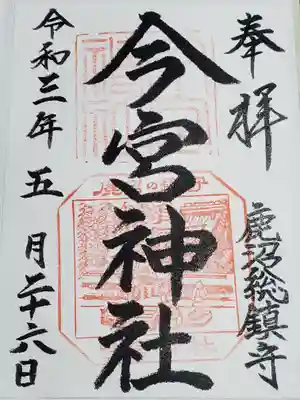 奉拝
鹿沼総鎮守
今宮神社
令和三年五月二十六日